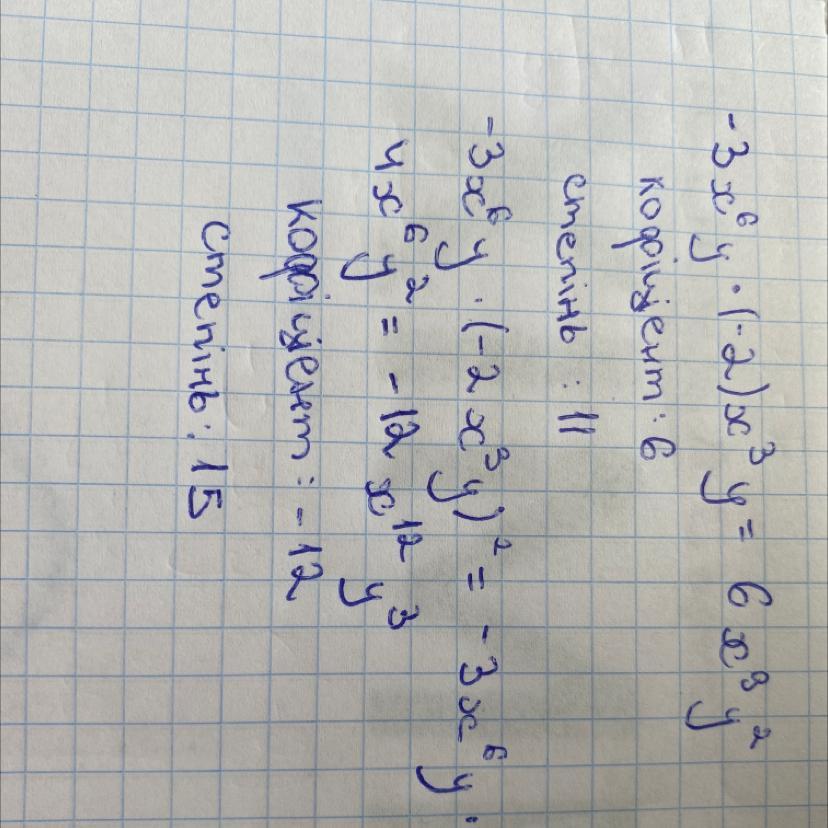 -3x⁶y · (-2)x³y = 6x⁹y²
кофіцієнт: 6
степінь : 11
-3x⁶y · (-2x³y)² = -3x⁶y ·
4x⁶y² = -12x¹²y³
кофіцієнт: -12
степінь: 15